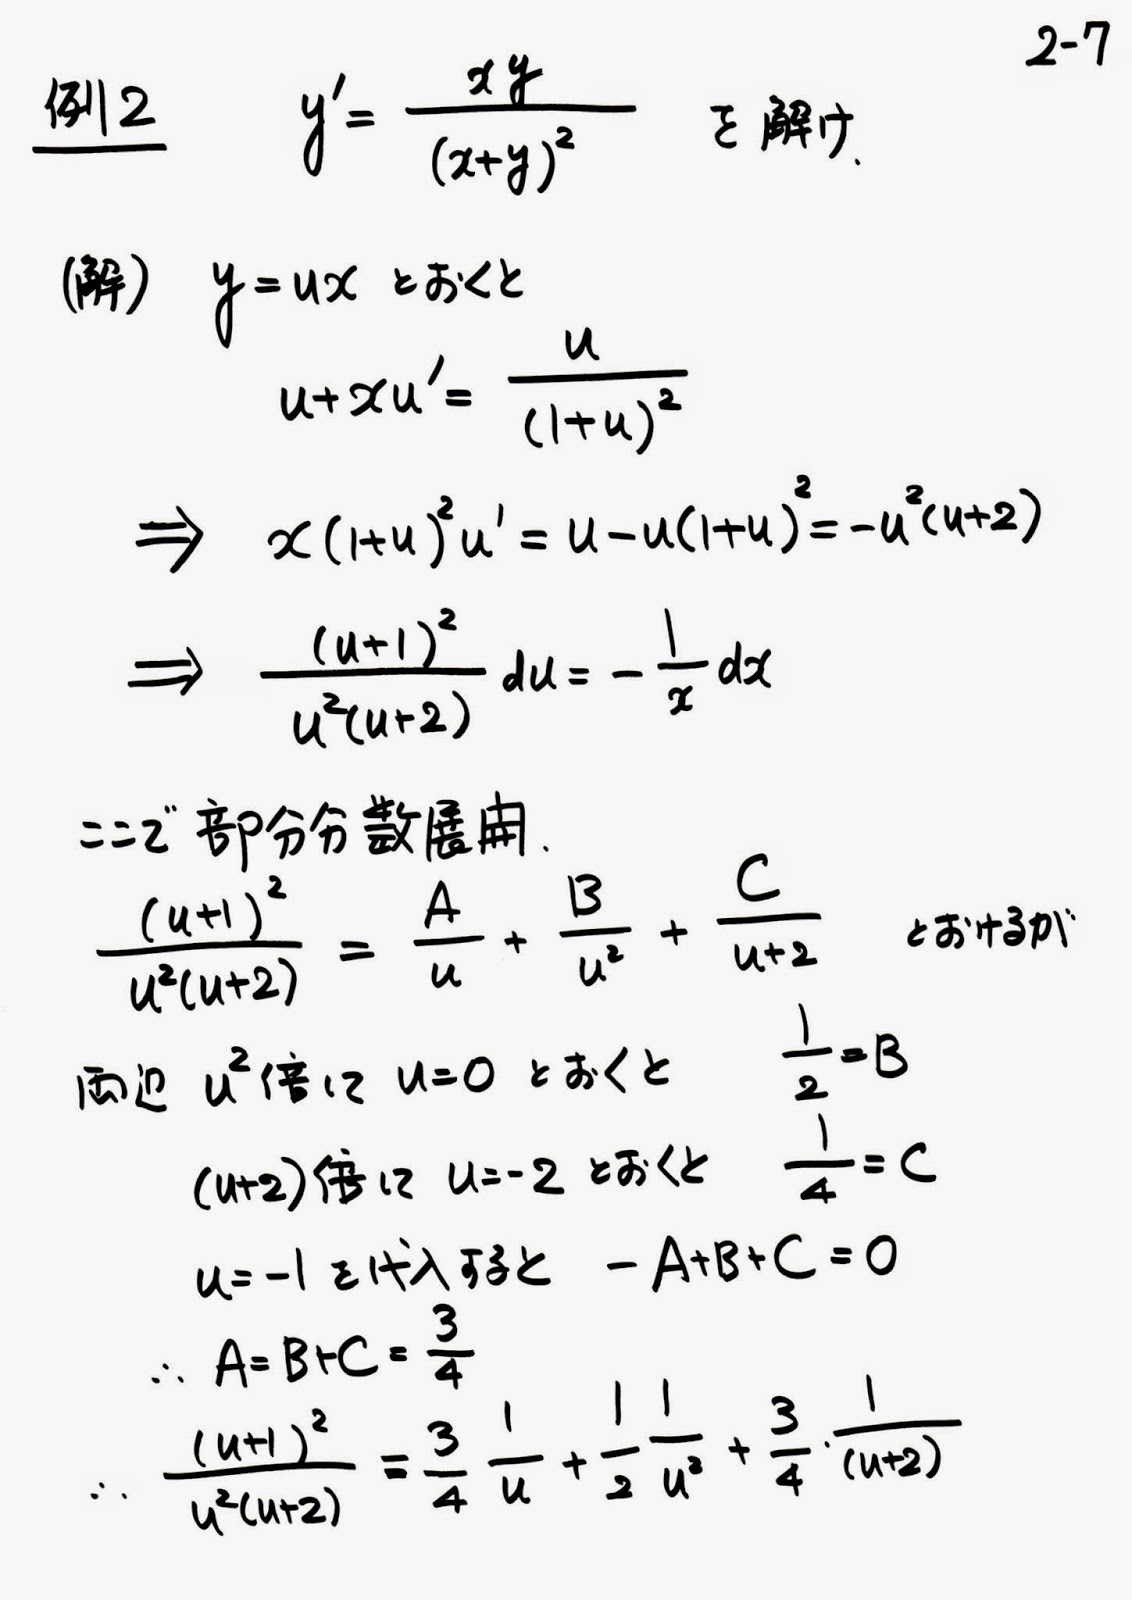 2-7
例2 y' = xy/(x+y)² を解け.
(解) y = ux とおくと
u+xu' = u/(1+u)²
⇒ x(1+u)²u' = u-u(1+u)² = -u²(u+2)
⇒ (u+1)²/u²(u+2) du = -1/x dx
ここで部分分数展開.
(u+1)²/u²(u+2) = A/u + B/u² + C/u+2 とおけるが
両辺 u²倍して u=0 とおくと 1/2 = B
(u+2)倍して u=-2 とおくと 1/4 = C
u=-1 を代入すると -A+B+C=0
∴ A=B+C = 3/4
∴ (u+1)²/u²(u+2) = 3/4 1/u + 1/2 1/u² + 3/4 · 1/(u+2)